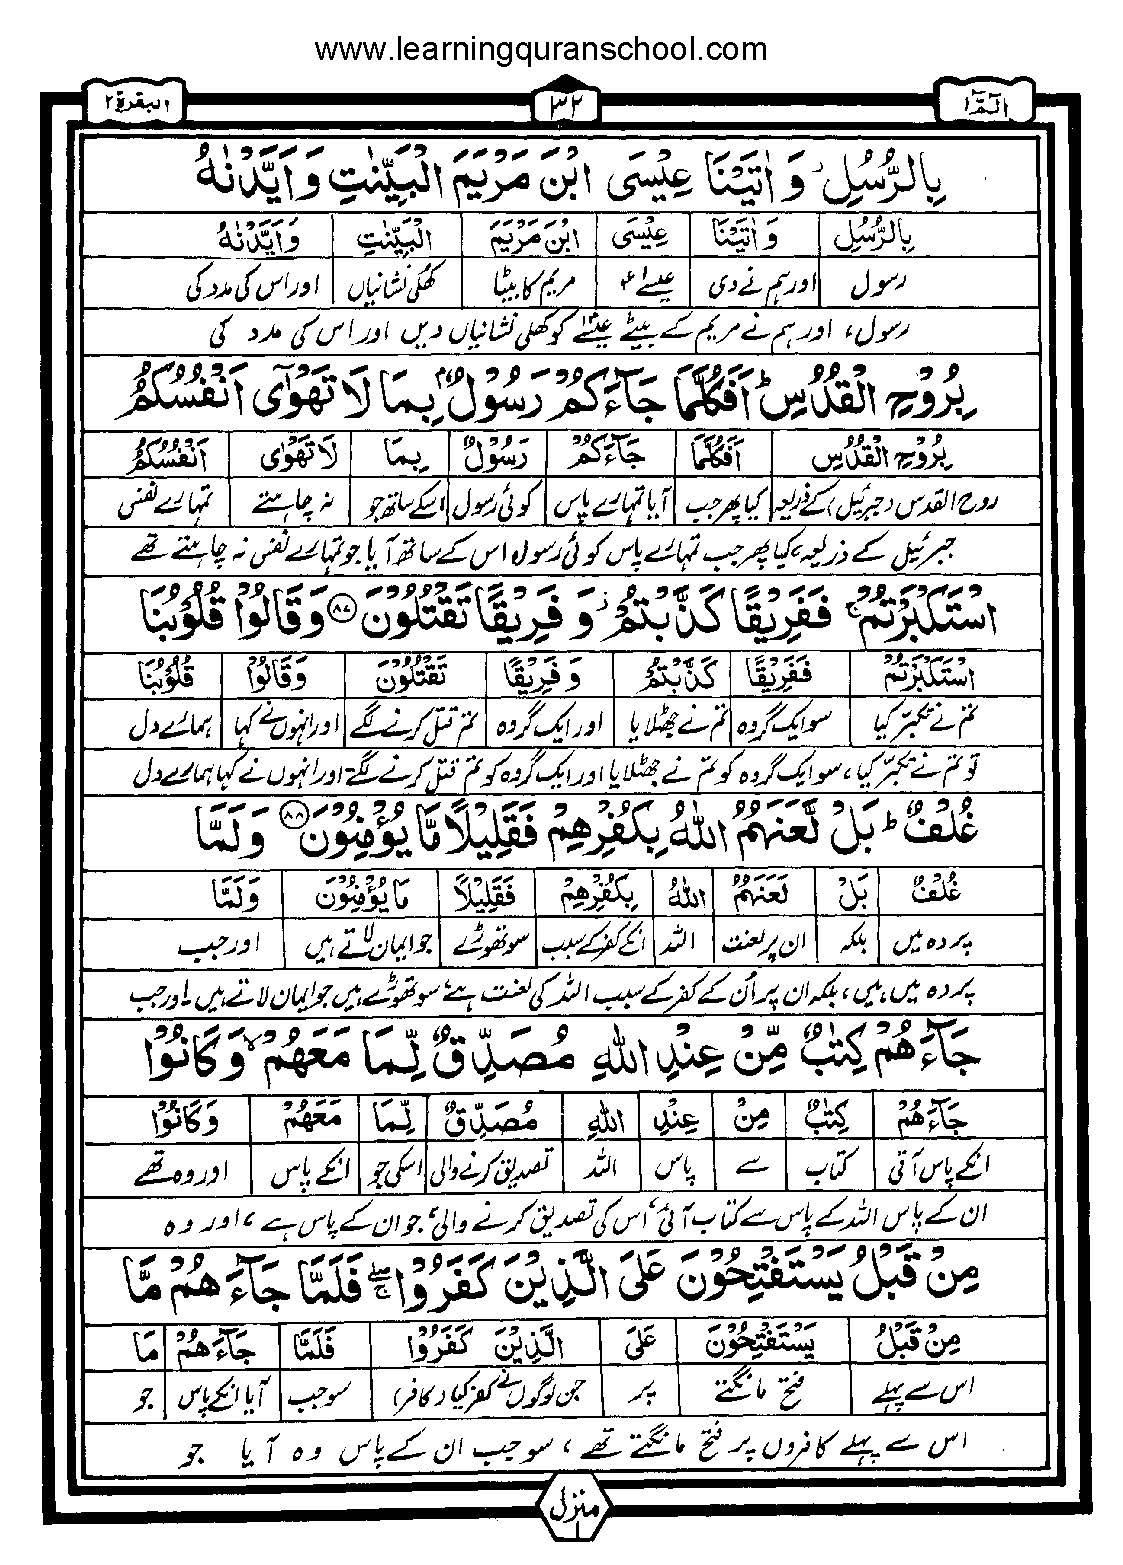 www.learningquranschool.com
الٓمّٓ ١
٣٢
البقرة ٢
بِالرُّسُلِ وَاٰتَيْنَا عِيْسَى ابْنَ مَرْيَمَ الْبَيِّنٰتِ وَاَيَّدْنٰهُ
بِالرُّسُلِ وَاٰتَيْنَا عِيْسَى ابْنَ مَرْيَمَ الْبَيِّنٰتِ وَاَيَّدْنٰهُ
رسول اور ہم نے دی عیسےٰ مریم کا بیٹا کھُلی نشانیاں اور اس کی مدد کی
رسول، اور ہم نے مریم کے بیٹے عیسٰے کو کھلی نشانیاں دیں اور اس کی مدد کی
بِرُوْحِ الْقُدُسِ ؕ اَفَكُلَّمَا جَآءَكُمْ رَسُوْلٌۢ بِمَا لَا تَهْوٰٓى اَنْفُسُكُمُ
بِرُوْحِ الْقُدُسِ اَفَكُلَّمَا جَآءَكُمْ رَسُوْلٌ بِمَا لَا تَهْوٰٓى اَنْفُسُكُمُ
روح القدس (جبرئیل) کے ذریعہ کیا پھر جب آیا تمہارے پاس کوئی رسول اسکے ساتھ جو نہ چاہتے تمہارے نفس
جبرئیل کے ذریعہ، کیا پھر جب تمہارے پاس کوئی رسول اس کے ساتھ آیا جو تمہارے نفس نہ چاہتے تھے
اسْتَكْبَرْتُمْ ۚ فَفَرِيْقًا كَذَّبْتُمْ ؗ وَفَرِيْقًا تَقْتُلُوْنَ ۝٨٧ وَقَالُوْا قُلُوْبُنَا
اسْتَكْبَرْتُمْ فَفَرِيْقًا كَذَّبْتُمْ وَفَرِيْقًا تَقْتُلُوْنَ وَقَالُوْا قُلُوْبُنَا
تم نے تکبر کیا سو ایک گروہ تم نے جھٹلایا اور ایک گروہ تم قتل کرنے لگے اور انہوں نے کہا ہمارے دل
تو تم نے تکبر کیا، سو ایک گروہ کو تم نے جھٹلایا اور ایک گروہ کو تم قتل کرنے لگے اور انہوں نے کہا ہمارے دل
غُلْفٌ ؕ بَلْ لَّعَنَهُمُ اللّٰهُ بِكُفْرِهِمْ فَقَلِيْلًا مَّا يُؤْمِنُوْنَ ۝٨٨ وَلَمَّا
غُلْفٌ بَلْ لَعَنَهُمُ اللّٰهُ بِكُفْرِهِمْ فَقَلِيْلًا مَا يُؤْمِنُوْنَ وَلَمَّا
پردہ میں بلکہ ان پر لعنت اللہ انکے کفر کے سبب سو تھوڑے جو ایمان لاتے ہیں اور جب
پردہ میں ہیں، بلکہ ان پر اُن کے کفر کے سبب اللہ کی لعنت ہے سو تھوڑے ہیں جو ایمان لاتے ہیں۔ اور جب
جَآءَهُمْ كِتٰبٌ مِّنْ عِنْدِ اللّٰهِ مُصَدِّقٌ لِّمَا مَعَهُمْ ۙ وَكَانُوْا
جَآءَهُمْ كِتٰبٌ مِنْ عِنْدِ اللّٰهِ مُصَدِّقٌ لِّمَا مَعَهُمْ وَكَانُوْا
انکے پاس آئی کتاب سے پاس اللہ تصدیق کرنے والی اسکی جو انکے پاس اور وہ تھے
ان کے پاس اللہ کے پاس سے کتاب آئی، اس کی تصدیق کرنے والی، جو ان کے پاس ہے، اور وہ
مِنْ قَبْلُ يَسْتَفْتِحُوْنَ عَلَى الَّذِيْنَ كَفَرُوْا ۖۚ فَلَمَّا جَآءَهُمْ مَّا
مِنْ قَبْلُ يَسْتَفْتِحُوْنَ عَلَى الَّذِيْنَ كَفَرُوْا فَلَمَّا جَآءَهُمْ مَا
اس سے پہلے فتح مانگتے پر جن لوگوں نے کفر کیا (کافر) سو جب آیا انکے پاس جو
اس سے پہلے کافروں پر فتح مانگتے تھے، سو جب ان کے پاس وہ آیا جو
منزل ١